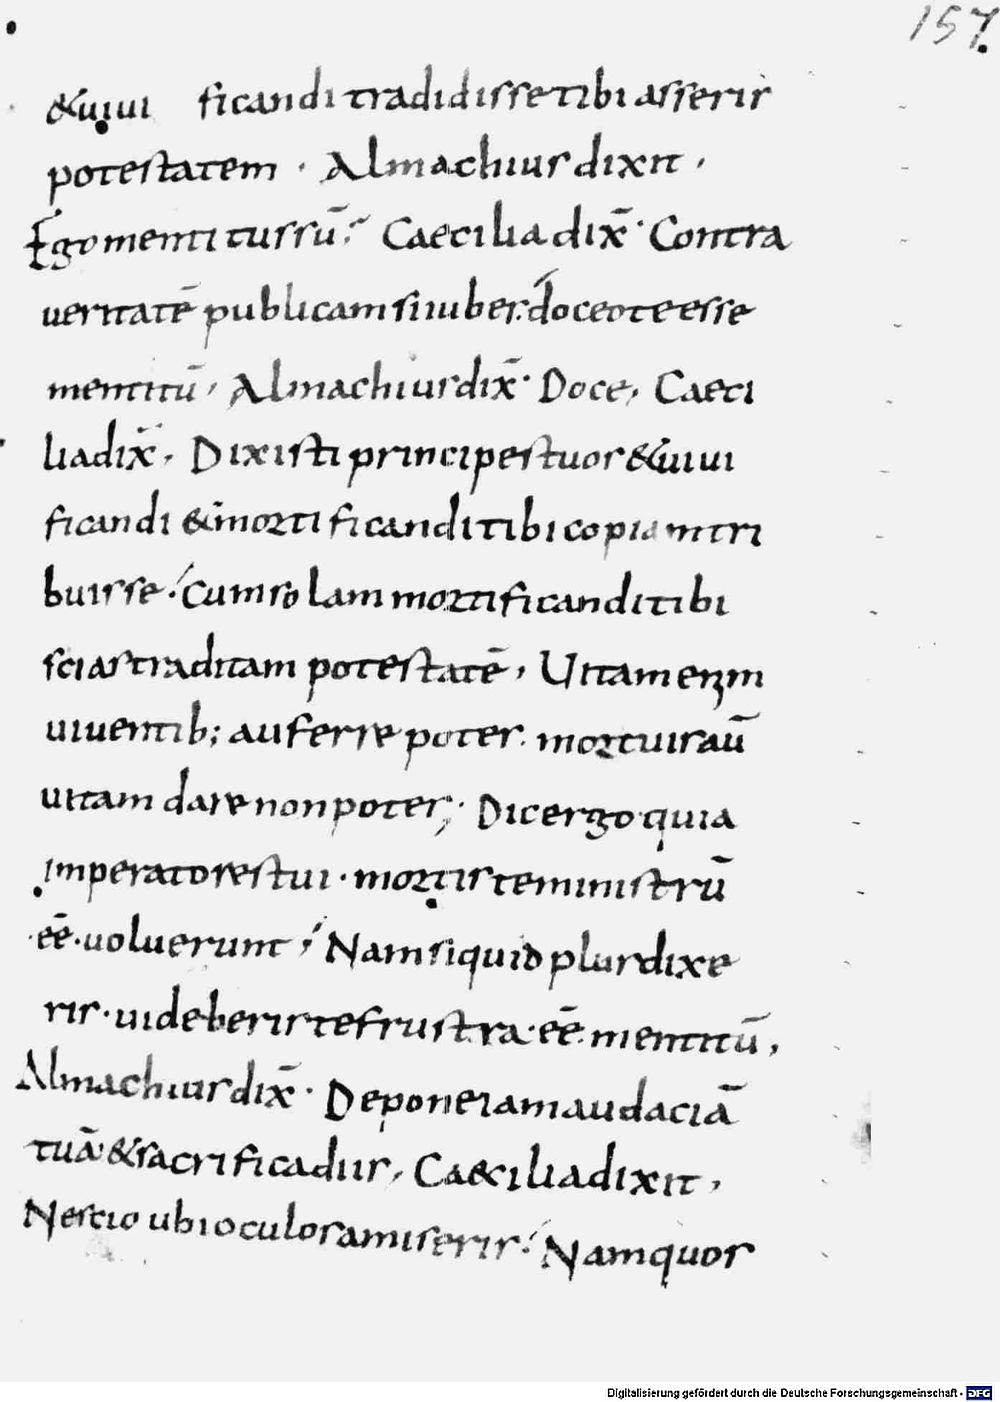 157.
&uiui ficandi tradidisse tibi asseris
potestatem · Almachius dixit ,
Ego mentitus sū; Caecilia dix̄ · Contra
veritatē publicam si iubes. doceo te esse
mentitū , Almachius dix̄ · Doce, Caeci
lia dix̄ , Dixisti principes tuos &uiui
ficandi & mortificandi tibi copiam tri
buisse · Cum solam mortificandi tibi
scias traditam potestatē , Uitam enim
uiuentib; auferre potes . mortuis aū
uitam dare non potes; · Dic ergo quia
imperatores tui · mortis te ministrū
·eē· uoluerunt ; Nam si quid plus dixe
ris · uideberis te frustra ·eē· mentitū ,
Almachius dix̄ · Depone iam audaciā
tuā & sacrifica diis , Caecilia dixit ,
Nescio ubi oculos amiseris · Nam quos
Digitalisierung gefördert durch die Deutsche Forschungsgemeinschaft - DFG